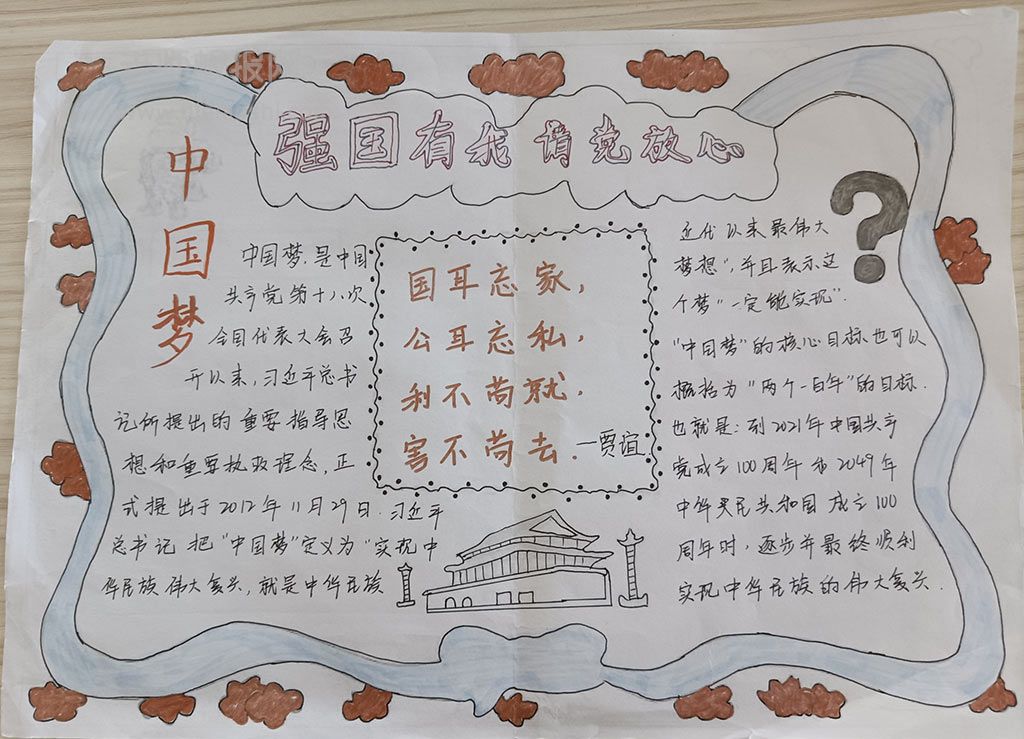 强国有我 请竞放心
中国梦
中国梦,是中国
共产党第十八次
全国代表大会召
开以来,习近平总书
记所提出的重要指导思
想和重要执政理念,正
式提出于2012年11月29日.习近平
总书记把“中国梦”定义为“实现中
华民族伟大复兴,就是中华民族
国耳忘家,
公耳忘私,
利不苟就.
害不苟去.—贾谊
近代以来最伟大
梦想”,并且表示这
个梦“一定能实现”.
“中国梦”的核心目标也可以
概括为“两个一百年”的目标.
也就是:到2021年中国共产
党成立100周年和2049年
中华人民共和国成立100
周年时,逐步并最终顺利
实现中华民族的伟大复兴.